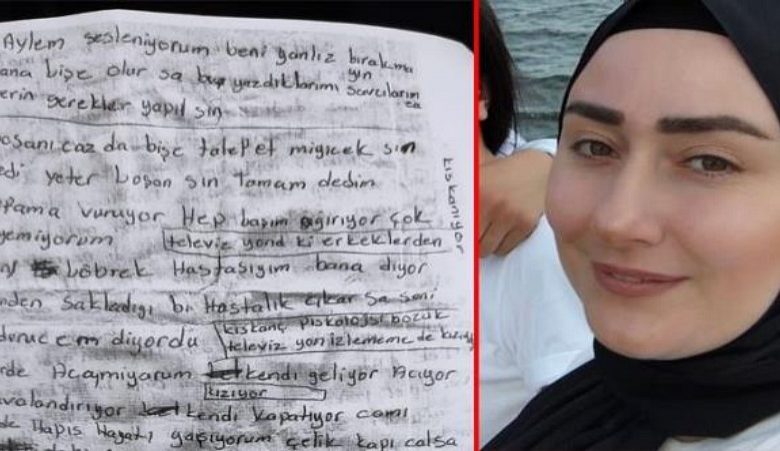 Aylem sesleniyorum beni yanlız bırakma
yın
ana bişe olur sa bu yazdıklarımı savcıların
ca
erin gerekler yapıl sın
oşanıcaz da bişe talepet miyicek sin
edi yeter boşan sın tamam dedim
fama vuruyor Hep başım ağırıyor çok
yemiyorum televiz yond ki erkeklerden
kıskanıyor
Löbrek Hastasıyım bana diyor
nden sakladığı bi Hastalık çıkar sa seni
dürücem diyordu kıskanç piskolojsi bozuk
televiz yon izlememe de
rde Açaymiyarum kendi geliyor Açıyor
kızıyor
valandırıyor kendi kapatıyor camı
de Hapis Hayatı yaşıyorum çelik kapı calsa